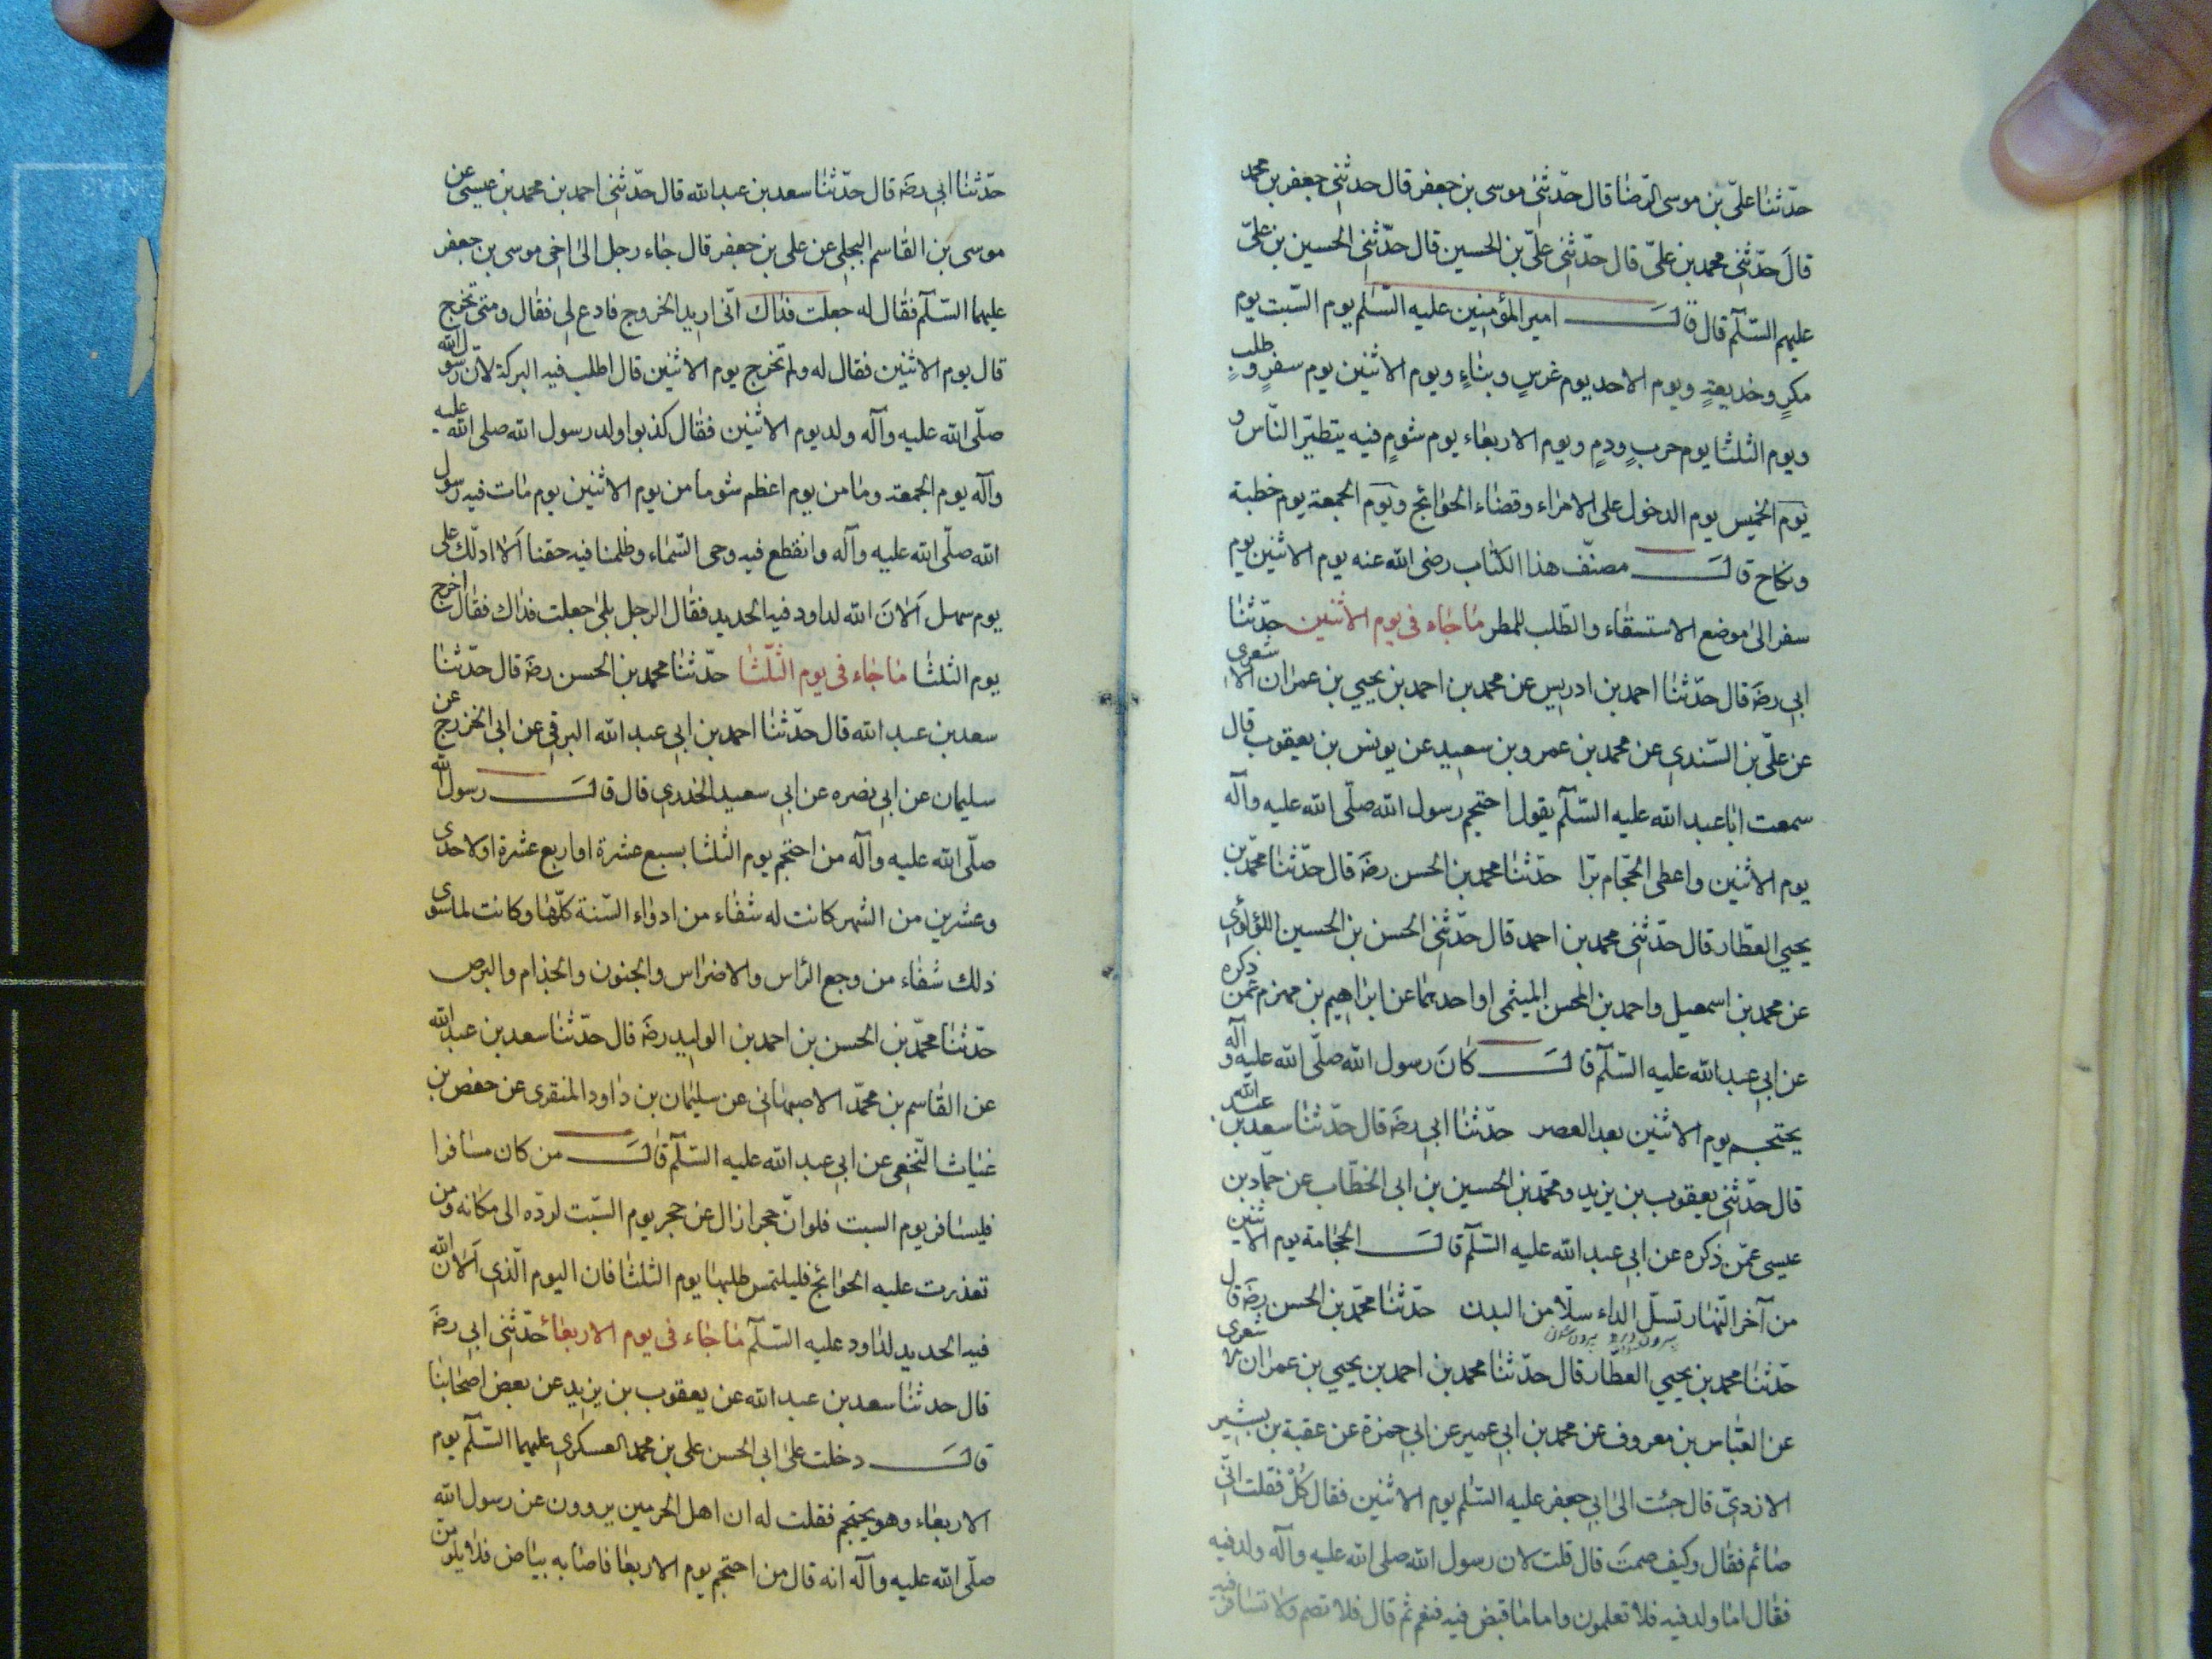 حدّثنا علىّ بن موسى الرّضا قال حدّثنى موسى بن جعفر قال حدثنى جعفر بن محمد
قال حدّثنى محمد بن علىّ قال حدّثنى علىّ بن الحسين قال حدّثنى الحسين بن علىّ
عليهم السّلم قال قال امير المؤمنين عليه السّلم يوم السّبت يوم
مكرٍ وخديعةٍ ويوم الاحد يوم غرسٍ وبناءٍ ويوم الاثنين يوم سفرٍ وطلبٍ
ويوم الثلثا يوم حربٍ ودمٍ ويوم الاربعاء يوم شومٍ فيه يتطيّر النّاس و
يوم الخميس يوم الدخول على الامراء وقضاء الحوائج ويوم الجمعة يوم خطبة
ونكاح قال مصنّف هذا الكتاب رضى الله عنه يوم الاثنين يوم
سفر الى موضع الاستسقاء والطّلب للمطر ما جاء فى يوم الاثنين حدّثنا
ابى رضه قال حدّثنا احمد بن ادريس عن محمد بن احمد بن يحيي بن عمران الاشعرى
عن علىّ بن السّندى عن محمد بن عمرو بن سعيد عن يونس بن يعقوب قال
سمعت ابا عبد الله عليه السّلم يقول احتجم رسول الله صلّى الله عليه وآله
يوم الاثنين واعطى الحجّام برّا حدّثنا محمد بن الحسن رضه قال حدّثنا محمّد بن
يحيي العطّار قال حدّثنى محمد بن احمد قال حدّثنى الحسن بن الحسين اللؤلؤى
عن محمد بن اسمعيل واحمد بن المحسن الميثمى او احدهما عن ابراهيم بن مهزم عمّن ذكره
عن ابى عبد الله عليه السّلم قال كان رسول الله صلّى الله عليه وآله
يحتجم يوم الاثنين بعد العصر حدّثنا ابى رضه قال حدّثنا سعد بن عبد الله
قال حدّثنى يعقوب بن يزيد ومحمّد بن الحسين بن ابى الخطّاب عن حمّاد بن
عيسى عمّن ذكره عن ابى عبد الله عليه السّلم قال الحجامة يوم الاثنين
من آخر النّهار تسلّ الداء سلّا من البدن حدّثنا محمّد بن الحسن رضه قال
حدّثنا محمد بن يحيي العطّار قال حدّثنا محمد بن احمد بن يحيي بن عمران الاشعرى
عن العبّاس بن معروف عن محمد بن ابى عمير عن ابى حمزة عن عقبة بن بشير
الازدىّ قال جئت الى ابى جعفر عليه السّلم يوم الاثنين فقال كُلْ فقلت انّى
صائم فقال وكيف صمت قال قلت لان رسول الله صلى الله عليه وآله ولد فيه
فقال اما ولد فيه فلا تعلمون واما ما قبض فيه فنعم ثم قال فلا تصم ولا تسافر فيه
حدّثنا ابى رضه قال حدّثنا سعد بن عبد الله قال حدّثنى احمد بن محمد بن عيسى عن
موسى بن القاسم البجلى عن على بن جعفر قال جاء رجل الى اخى موسى بن جعفر
عليهما السّلم فقال له جعلت فداك انّى اريد الخروج فادع لى فقال ومتى تخرج
قال يوم الاثنين فقال له ولم تخرج يوم الاثنين قال اطلب فيه البركة لانّ رسول الله
صلّى الله عليه وآله ولد يوم الاثنين فقال كذبوا ولد رسول الله صلى الله عليه
وآله يوم الجمعة وما من يوم اعظم شوما من يوم الاثنين يوم مات فيه رسول
الله صلّى الله عليه وآله وانقطع فيه وحى السّماء وظلمنا فيه حقنا ألا ادلّك على
يوم سهل ألان الله لداود فيه الحديد فقال الرجل بلى جعلت فداك فقال اخرج
يوم الثلثا ما جاء فى يوم الثّلثا حدّثنا محمد بن الحسن رضه قال حدّثنا
سعد بن عبد الله قال حدّثنا احمد بن ابى عبد الله البرقى عن ابى الخزرج عن
سليمان عن ابى نضره عن ابى سعيد الخدرى قال قال رسول الله
صلّى الله عليه وآله من احتجم يوم الثلثا بسبع عشرة او اربع عشرة او لاحدى
وعشرين من الشهر كانت له شفاء من ادواء السّنة كلّها وكانت لما سوى
ذلك شفاء من وجع الرّاس والاضراس والجنون والجذام والبرص
حدّثنا محمّد بن الحسن بن احمد بن الوليد رضه قال حدّثنا سعد بن عبد الله
عن القاسم بن محمّد الاصبهانى عن سليمان بن داود المنقرى عن حفص بن
غياث النّخعى عن ابى عبد الله عليه السّلم قال من كان مسافرا
فليسافر يوم السبت فلو انّ حجرا زال عن حجر يوم السّبت لردّه الى مكانه ومن
تعذرت عليه الحوائج فليلتمس طلبها يوم الثلثا فان اليوم الّذى ألان الله
فيه الحديد لداود عليه السّلم ما جاء فى يوم الاربعاء حدّثنى ابى رضه
قال حدثنا سعد بن عبد الله عن يعقوب بن يزيد عن بعض اصحابنا
قال دخلت على ابى الحسن على بن محمد العسكرى عليهما السّلم يوم
الاربعاء وهو يحتجم فقلت له ان اهل الحرمين يروون عن رسول الله
صلّى الله عليه وآله انه قال من احتجم يوم الاربعا فاصابه بياض فلا يلومن